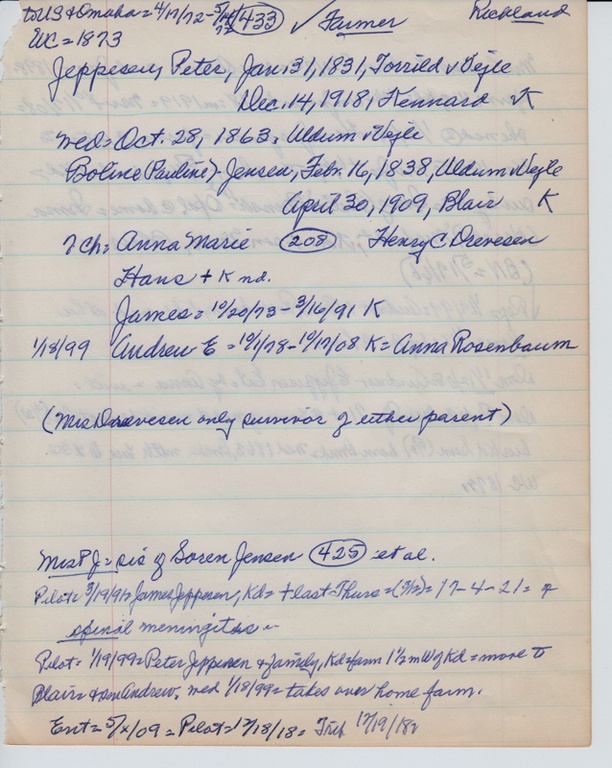 to US & Omaha = 4/17/72 - 5/ /72 433 ✓ Farmer Richland
WC = 1873
Jeppesen, Peter, Jan. 31, 1831, Torrild v Vejle
Dec. 14, 1918, Kennard K
wed = Oct. 28, 1863, Uldum v Vejle
Boline (Pauline) - Jensen, Febr. 16, 1838, Uldum v Vejle
April 30, 1909, Blair K
ch = Anna Marie 208 Henry C Drevesen
Hans + K nd.
James = 10/20/73 - 3/16/91 K
1/18/99 Andrew E = 10/1/78 - 10/17/08 K = Anna Rosenbaum
(Mrs Drevesen only survivor of either parent)
Mrs P J = sis of Soren Jensen 425 et al.
Pilot = 3/19/91 = James Jeppesen, Kd = + last Thurs = (3/12) = 17-4-21 = of
spinal meningitis =
Pilot = 1/19/99 = Peter Jeppesen & family, Kd = farm 1½ m W of Kd = move to
Blair = & son Andrew, wed 1/18/99 = takes over home farm.
Ent = 5/x/09 = Pilot = 12/18/18 = Trib 12/19/18